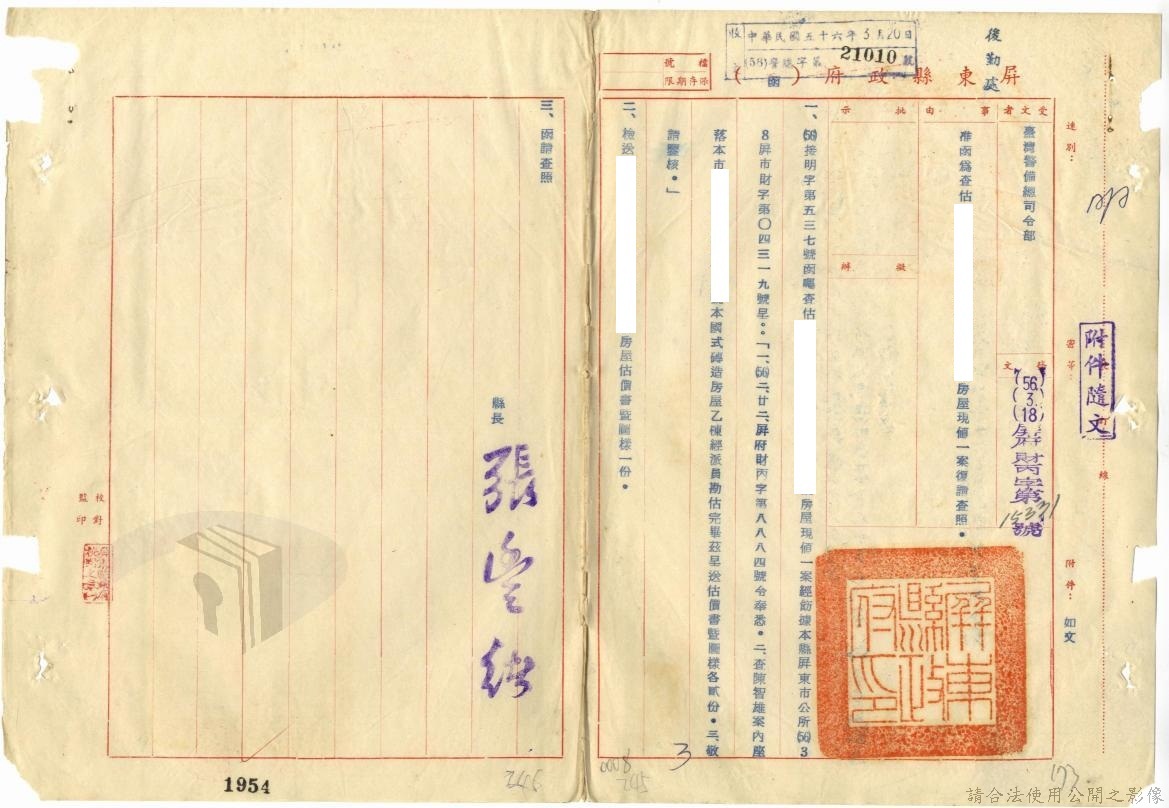 後勤處
收 中華民國五十六年3月20日
(58)警總字第 21010 號
屏東縣政府（函）
檔號
保存期限
速別：
密等：
附件隨文
線
附件：如文
受文者
臺灣警備總司令部
發文
(56.3.18)屏財字第15331號
事由
准函為查估
房屋現值一案復請查照。
批示
擬辦
屏東縣政府印
一、(56)接明字第五三七號函囑查估
房屋現值一案經飭據本縣屏東市公所(56)3
8屏市財字第〇四三一九號呈：「一、(56)二、廿二、屏府財丙字第八八八四號令奉悉。二、查陳智雄案內座
落本市
本國式磚造房屋乙棟經派員勘估完畢茲呈送估價書暨圖樣各貳份。三、敬
請鑒核。」
二、檢送
房屋估價書暨圖樣一份。
三、函請查照
縣長
張豐緒
校對
監印
3
1954
246
0008
245
173
請合法使用公開之影像